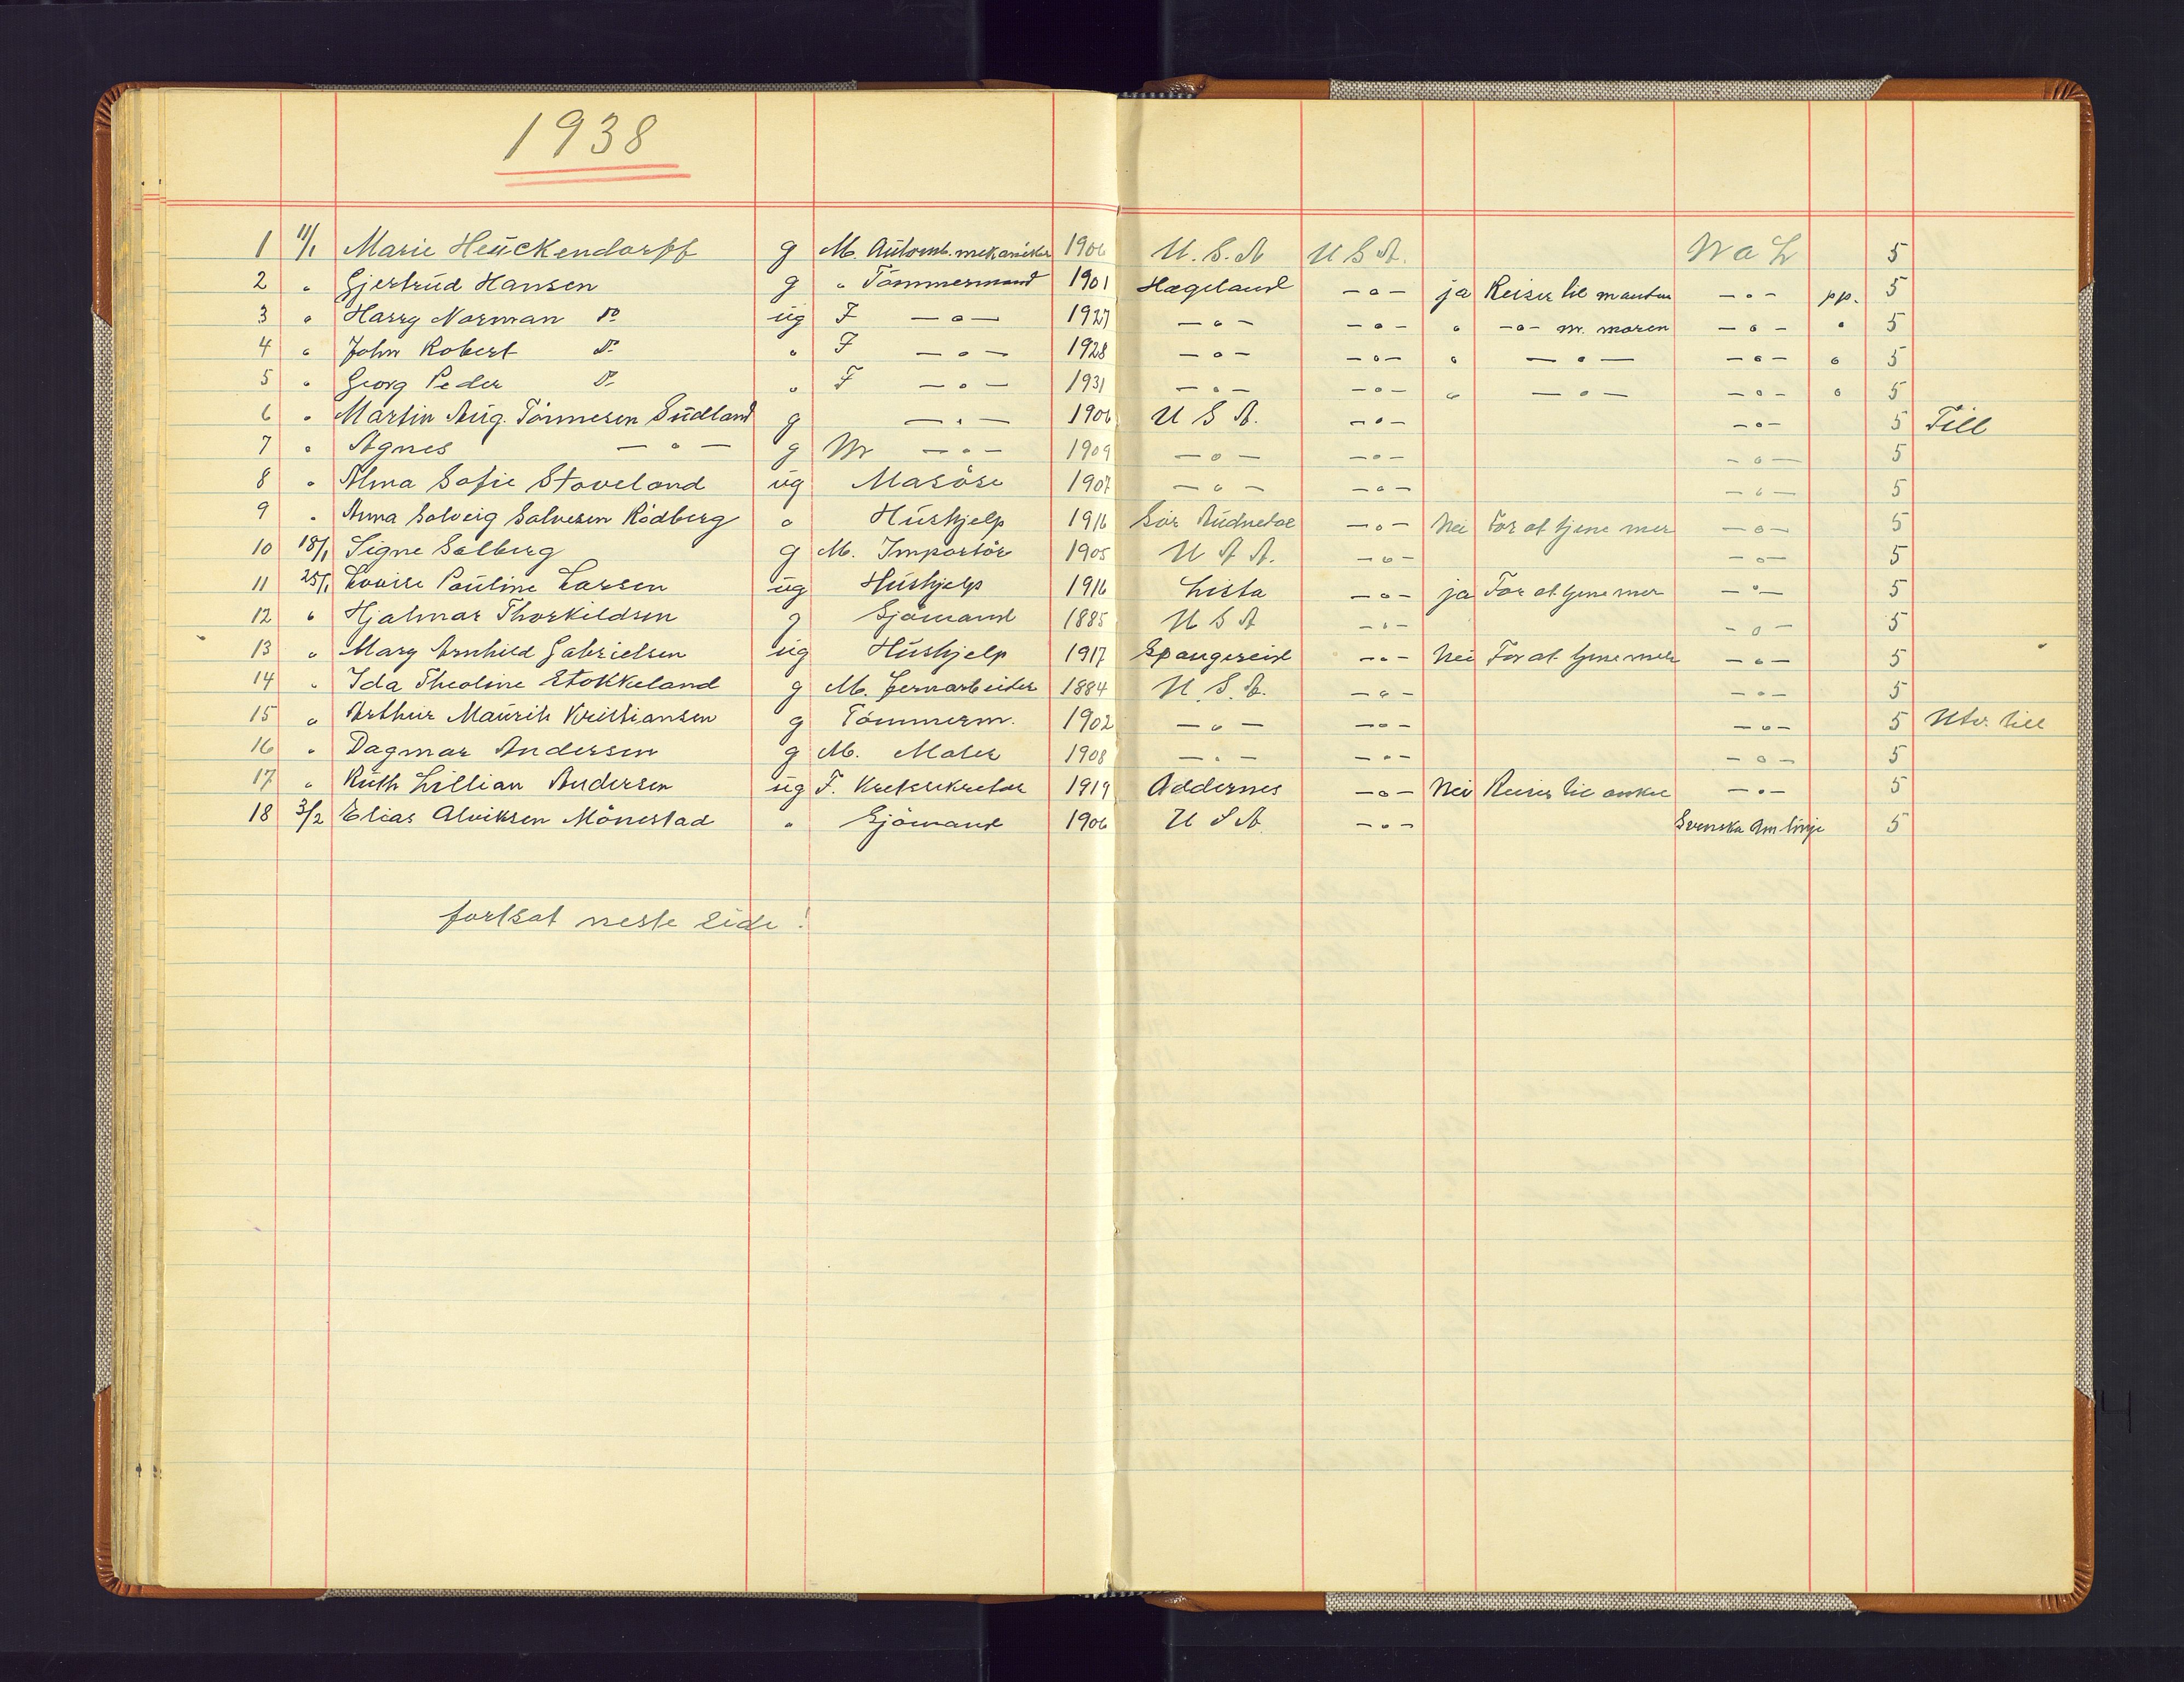 1938
1 11/1 Marie Heuckendorff g M. Automb. mekaniker 1906 U.S.A U S A. N a L 5
2 " Gjertrud Hansen g " Tömmermand 1901 Hægeland —o— ja Reiser til manden —o— pp. 5
3 " Harry Norman Do ug F —o— 1927 —o— —o— " —o— m. moren —o— " 5
4 " John Robert Do " F —o— 1928 —o— —o— " —o— —o— " 5
5 " Georg Peder Do " F —o— 1931 —o— —o— " —o— —o— " 5
6 " Martin Aug. Tönnesen Sudland g —o— 1906 U S A. —o— —o— 5 Till
7 " Agnes —o— g M —o— 1909 —o— —o— —o— 5
8 " Alma Sofie Stoveland ug Masöse 1907 —o— —o— —o— 5
9 " Anna Solveig Salvesen Rödberg " Hushjelp 1916 Sör Audnedal —o— Nei For at tjene mer —o— 5
10 18/1 Signe Solberg g M. Importör 1905 U S A. —o— —o— 5
11 25/1 Lovise Pauline Larsen ug Hushjelp 1916 Lista —o— ja For at tjene mer —o— 5
12 " Hjalmar Thorkildsen g Sjömand 1885 U S A —o— —o— 5
13 " Mary Arnhild Gabrielsen ug Hushjelp 1917 Spangereid —o— Nei For at tjene mer —o— 5
14 " Ida Theoline Stokkeland g M. Jernarbeider 1884 U. S. A. —o— —o— 5
15 " Arthur Maurits Kristiansen g Tömmerm. 1902 —o— —o— —o— 5 Utv. till
16 " Dagmar Andersen g M. Maler 1908 —o— —o— —o— 5
17 " Ruth Lillian Andersen ug F. 1919 Oddernes —o— Nei Reiser til onkel —o— 5
18 3/2 Elias Alviksen Mönestad " Sjömand 1906 U S A. —o— Svenska Am linje 5
fortsat neste side!